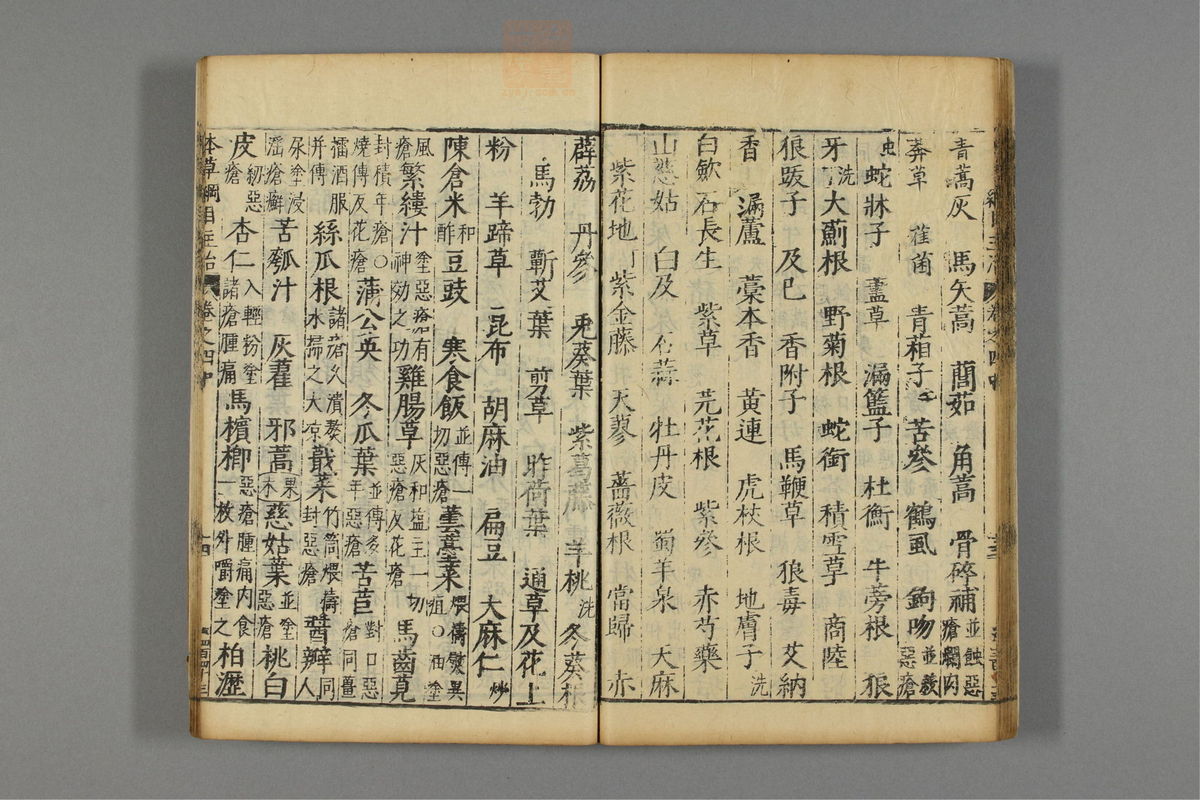 青蒿灰　馬矢蒿　藺茹　角蒿　骨碎補並蝕惡瘡爛肉
莽草　雚菌　青葙子　苦參　鶴虱　鉤吻並殺惡瘡
虫　蛇牀子　藎草　漏籃子　杜衡　牛蒡根　狼
牙洗　大薊根　野菊根　蛇銜　積雪草　商陸
狼跋子　及巳　香附子　馬鞭草　狼毒　艾納
香　漏蘆　藁本香　黃連　虎杖根　地膚子洗
白歛　石長生　紫草　芫花根　紫參　赤芍藥
山慈姑　白及　石蒜　牡丹皮　蜀羊泉　天麻
紫花地丁　紫金藤　天蓼　薔薇根　當歸　赤
薜荔　丹參　兎葵葉　紫葛　羊桃洗　冬葵根
馬勃　蘄艾葉　剪草　昨荷葉　通草及花上
粉　羊蹄草　昆布　胡麻油　扁豆　大麻仁炒
陳倉米和酢　豆豉　寒食飯並傅一切惡瘡　蕓薹菜煨擣熨異疽○油塗
風瘡　蘩縷汁塗惡瘡有神効之功　雞腸草灰和塩主一切惡瘡反花瘡　馬齒莧
封積年瘡○燒傅反花瘡　蒲公英　冬瓜葉並傅多年惡瘡　苦苣對口惡瘡同薑
擂酒服并傅　絲瓜根諸瘡久潰熬水掃之大凉　蕺菜竹筒煨擣封惡瘡　醬瓣同人
尿塗浸淫瘡癬　苦瓠汁　灰藋　邪蒿　果木　慈姑葉並塗惡瘡　桃白
皮紉惡瘡　杏仁入輕粉塗諸瘡腫痛　馬檳榔惡瘡腫痛內食一枚外嚼塗之　柏瀝
本草綱目主治　卷之四中　十四